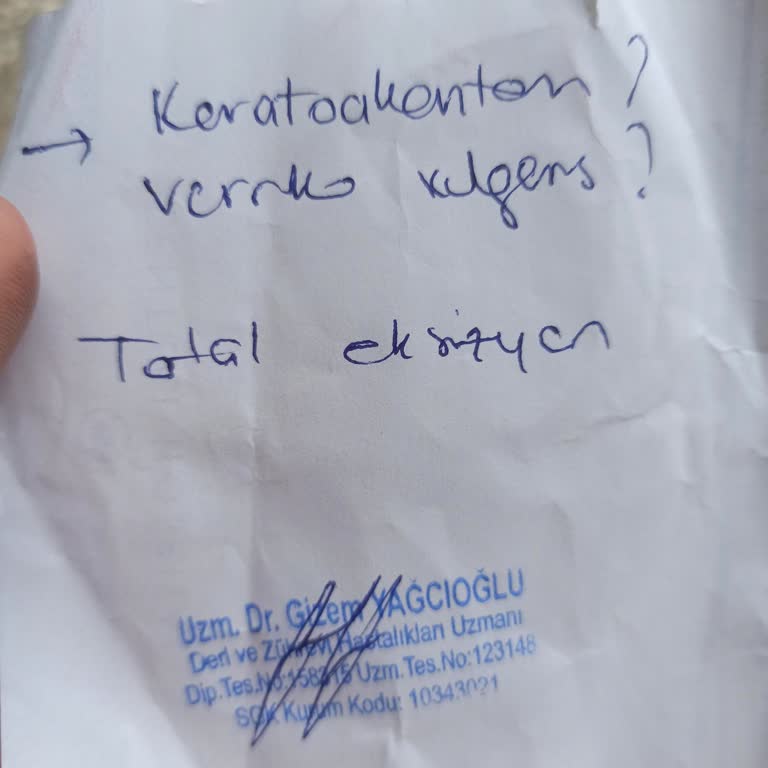 → Keratoakantom ?
verruko vulgaris ?
Total eksizyon
Uzm. Dr. Gizem YAĞCIOĞLU
Deri ve Zührevi Hastalıkları Uzmanı
Dip.Tes.No:158315 Uzm.Tes.No:123148
SGK Kurum Kodu: 10343021